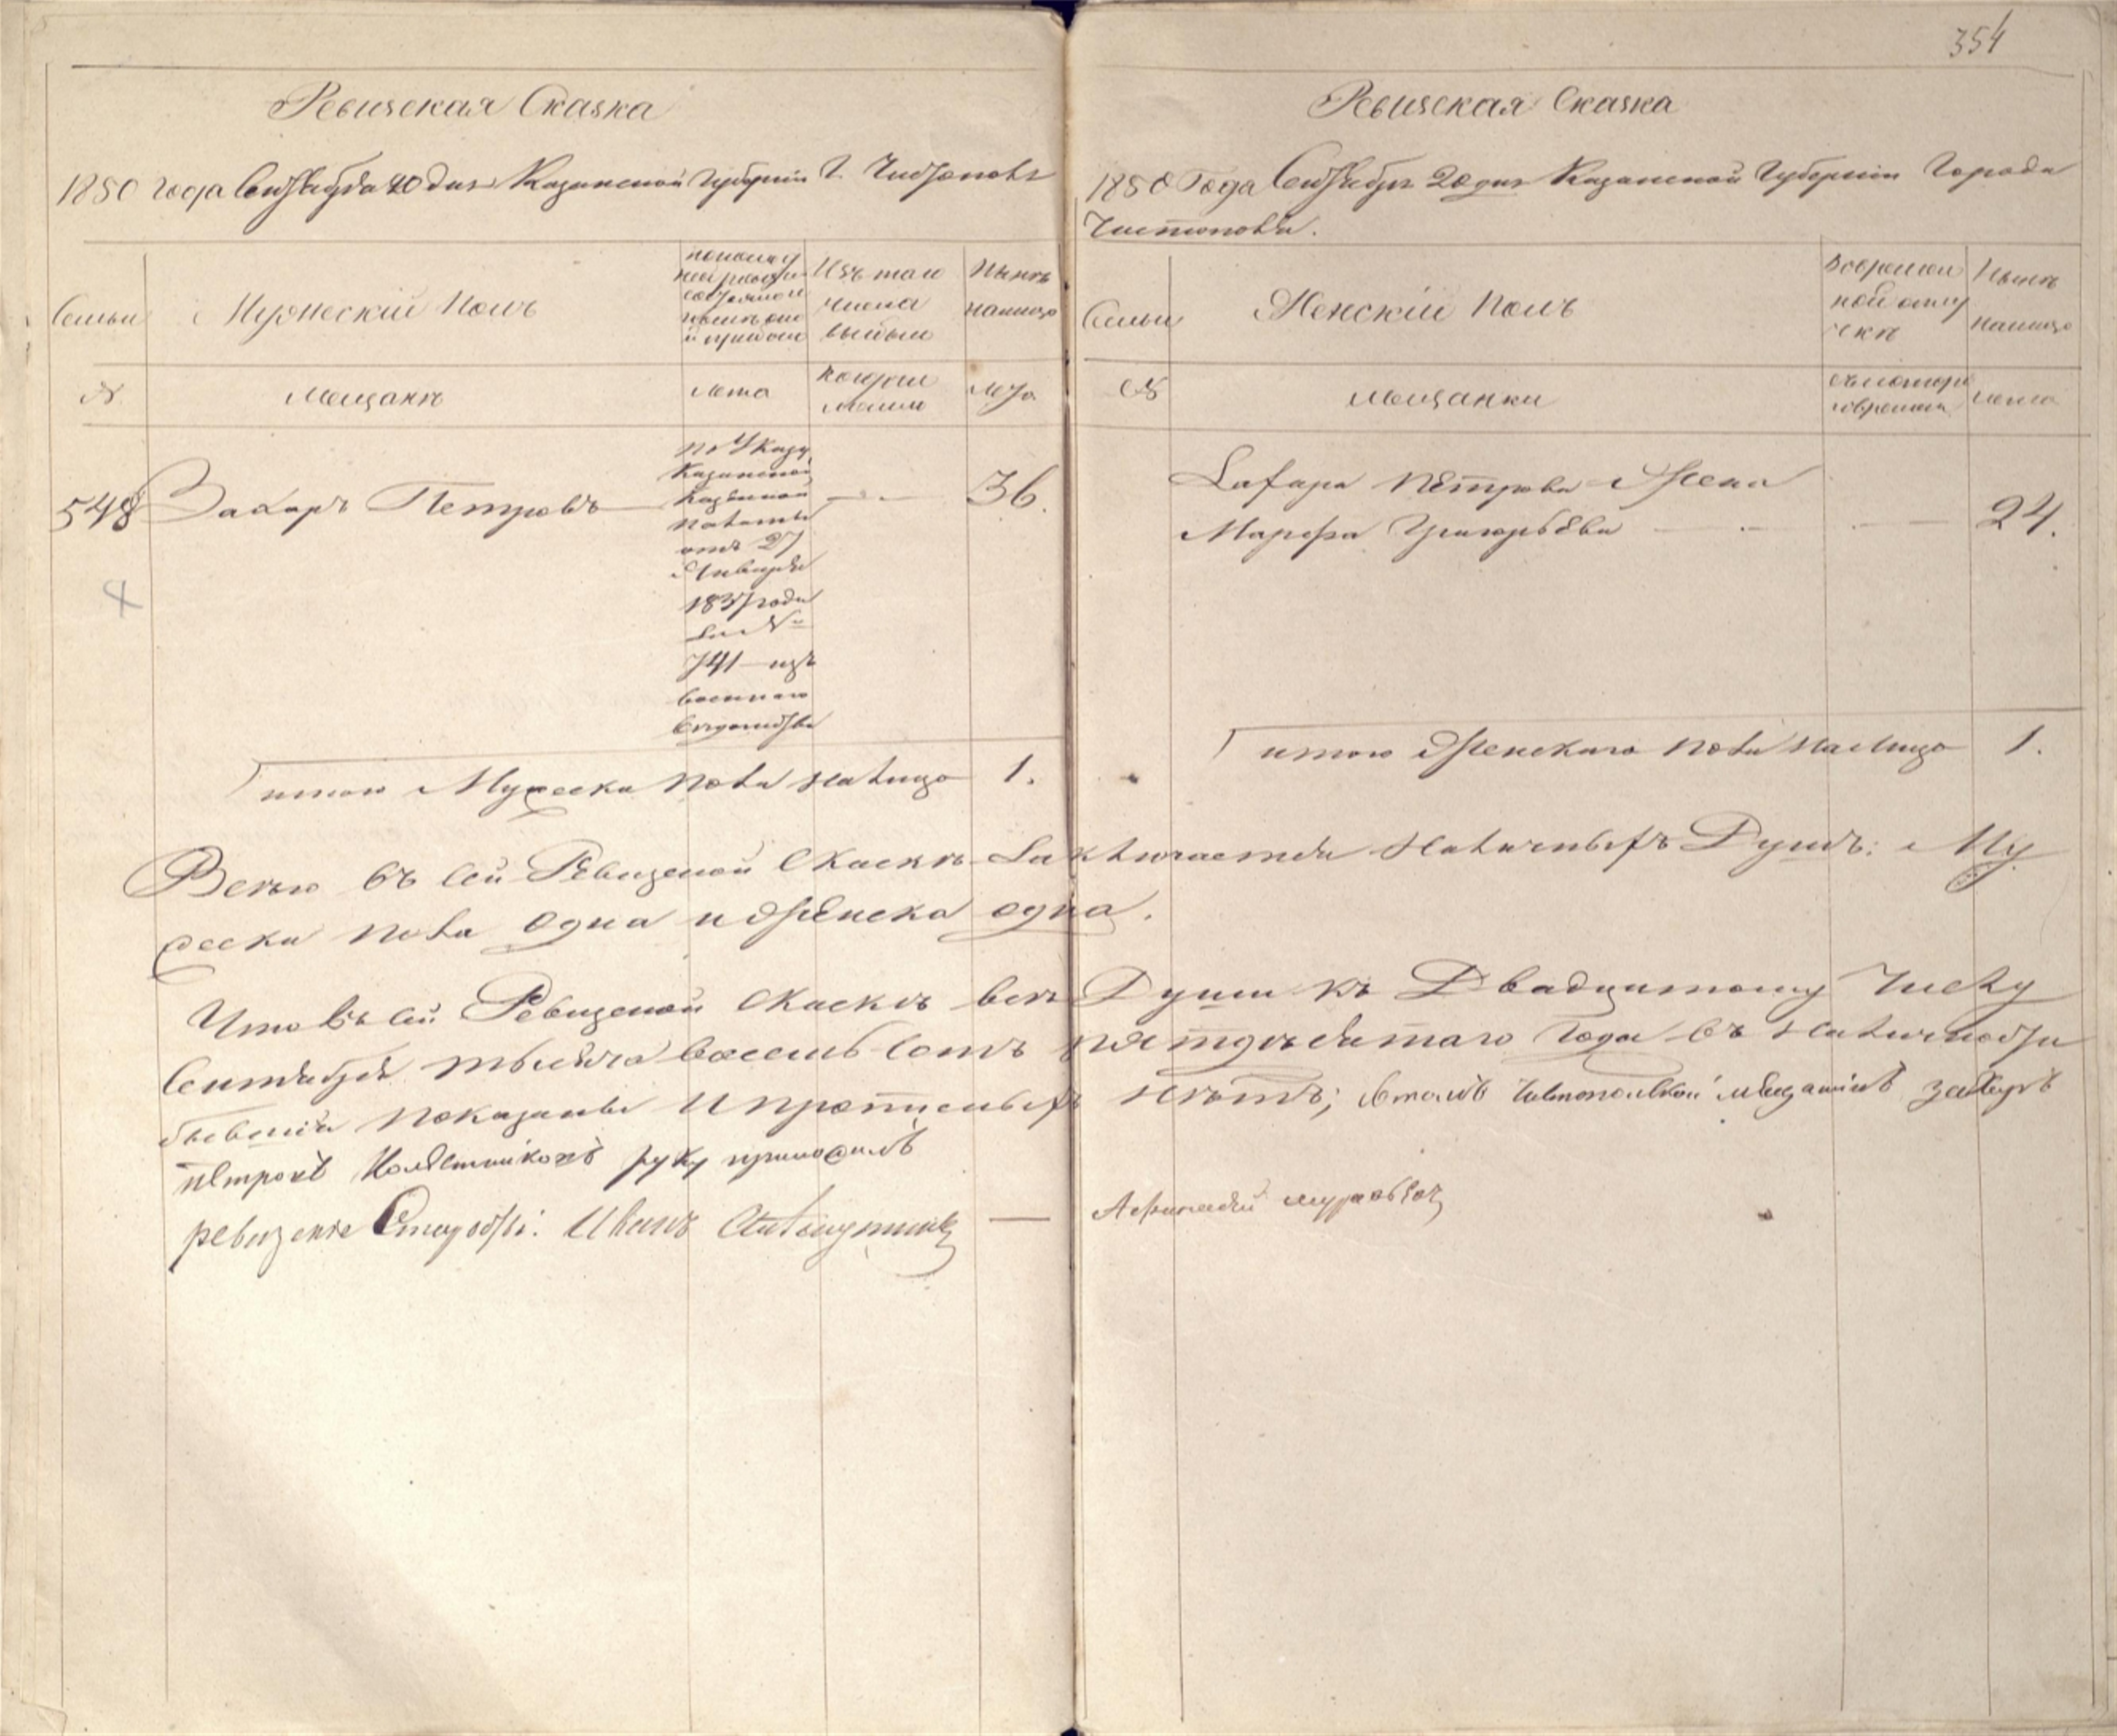 354
Ревизская Сказка
1850 года Сентября 20 дня Казанской Губернии Г. Чистополя
Семьи
Мужескій Полъ
Изъ того
числа
выбыли
Нынѣ
налицо
№
Мещанѣ
лета
когда
лета
548
Захаръ Петровъ
по Указу
Казанской
Казенной
палаты
отъ 27
Января
1837 года
за №
741 изъ
военнаго
ведомства
36.
итого Мужеска пола налицо 1.
Ревизская Сказка
1850 Года Сентября 20 дня Казанской Губерніи Города
Чистополя.
Семьи
Женскій Полъ
Вовремен
ной отлу
чкѣ
Нынѣ
налицо
№
мещанки
съ котораго
времени
лета
Захара Петрова Жена
Марфа Григорьева
24.
итого Женскаго пола налицо 1.
Всего въ сей Ревизской Сказкѣ заключается наличныхъ Душъ: Му
жеска пола одна и Женска одна.
Что въ сей Ревизской Сказкѣ всѣ Души къ Двадцатому Числу
Сентября тысяча восемь сотъ пятдесятаго Года въ наличности
бывшия показаны и прописныхъ нѣтъ; втомъ чистопольской мещанинъ захаръ
петровъ руку приложилъ
ревизские Старосты: Иванъ
Афанасий